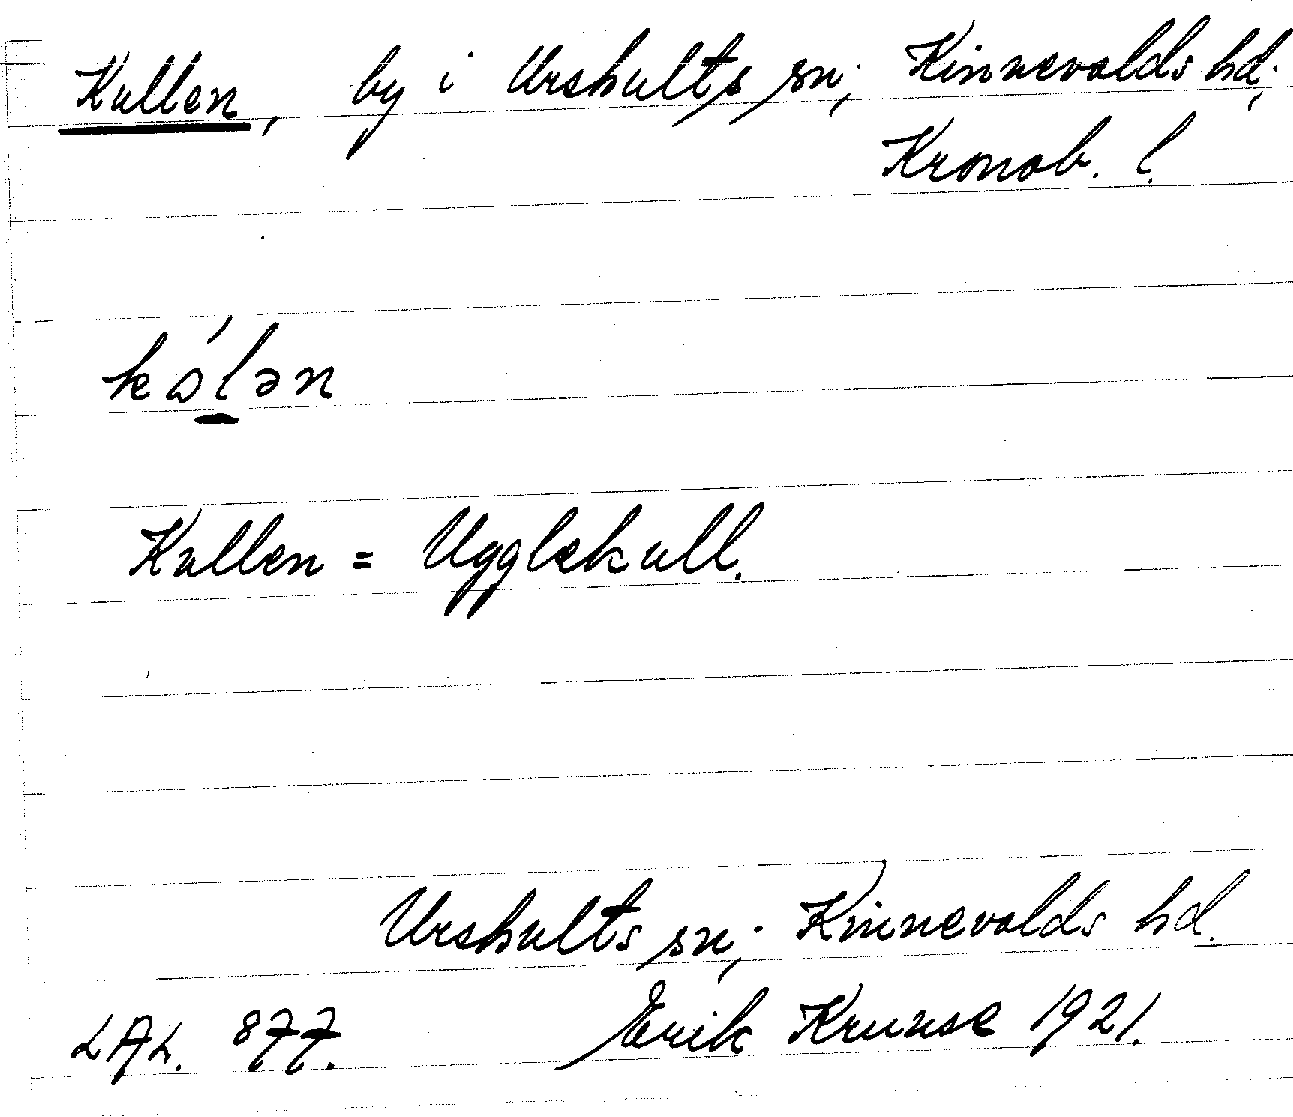 Kullen, by i Urshults sn; Kinnevalds hd;
Kronob. l.
kɔ́lən
Kullen = Ugglekull.
Urshults sn; Kinnevalds hd.
LAL. 877. Erik Krunse 1921.